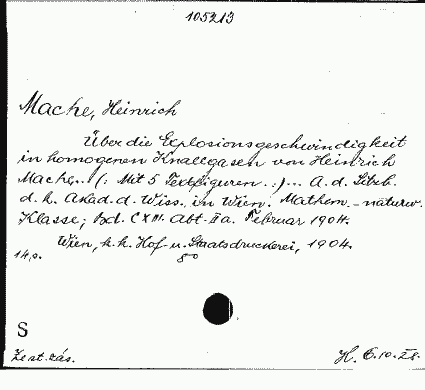 105213
Mache, Heinrich
Über die Explosionsgeschwindigkeit
in homogenen Knallgasen von Heinrich
Mache. (: Mit 5 Textfiguren. :) ... A. d. Sitzb.
d. k. Akad. d. Wiss. in Wien. Mathem. - naturw.
Klasse; Bd. CXIII. Abt. IIa. Februar 1904.
Wien, k. k. Hof- u. Staatsdruckerei, 1904.
14 p. 8°
S
H. 6.10.